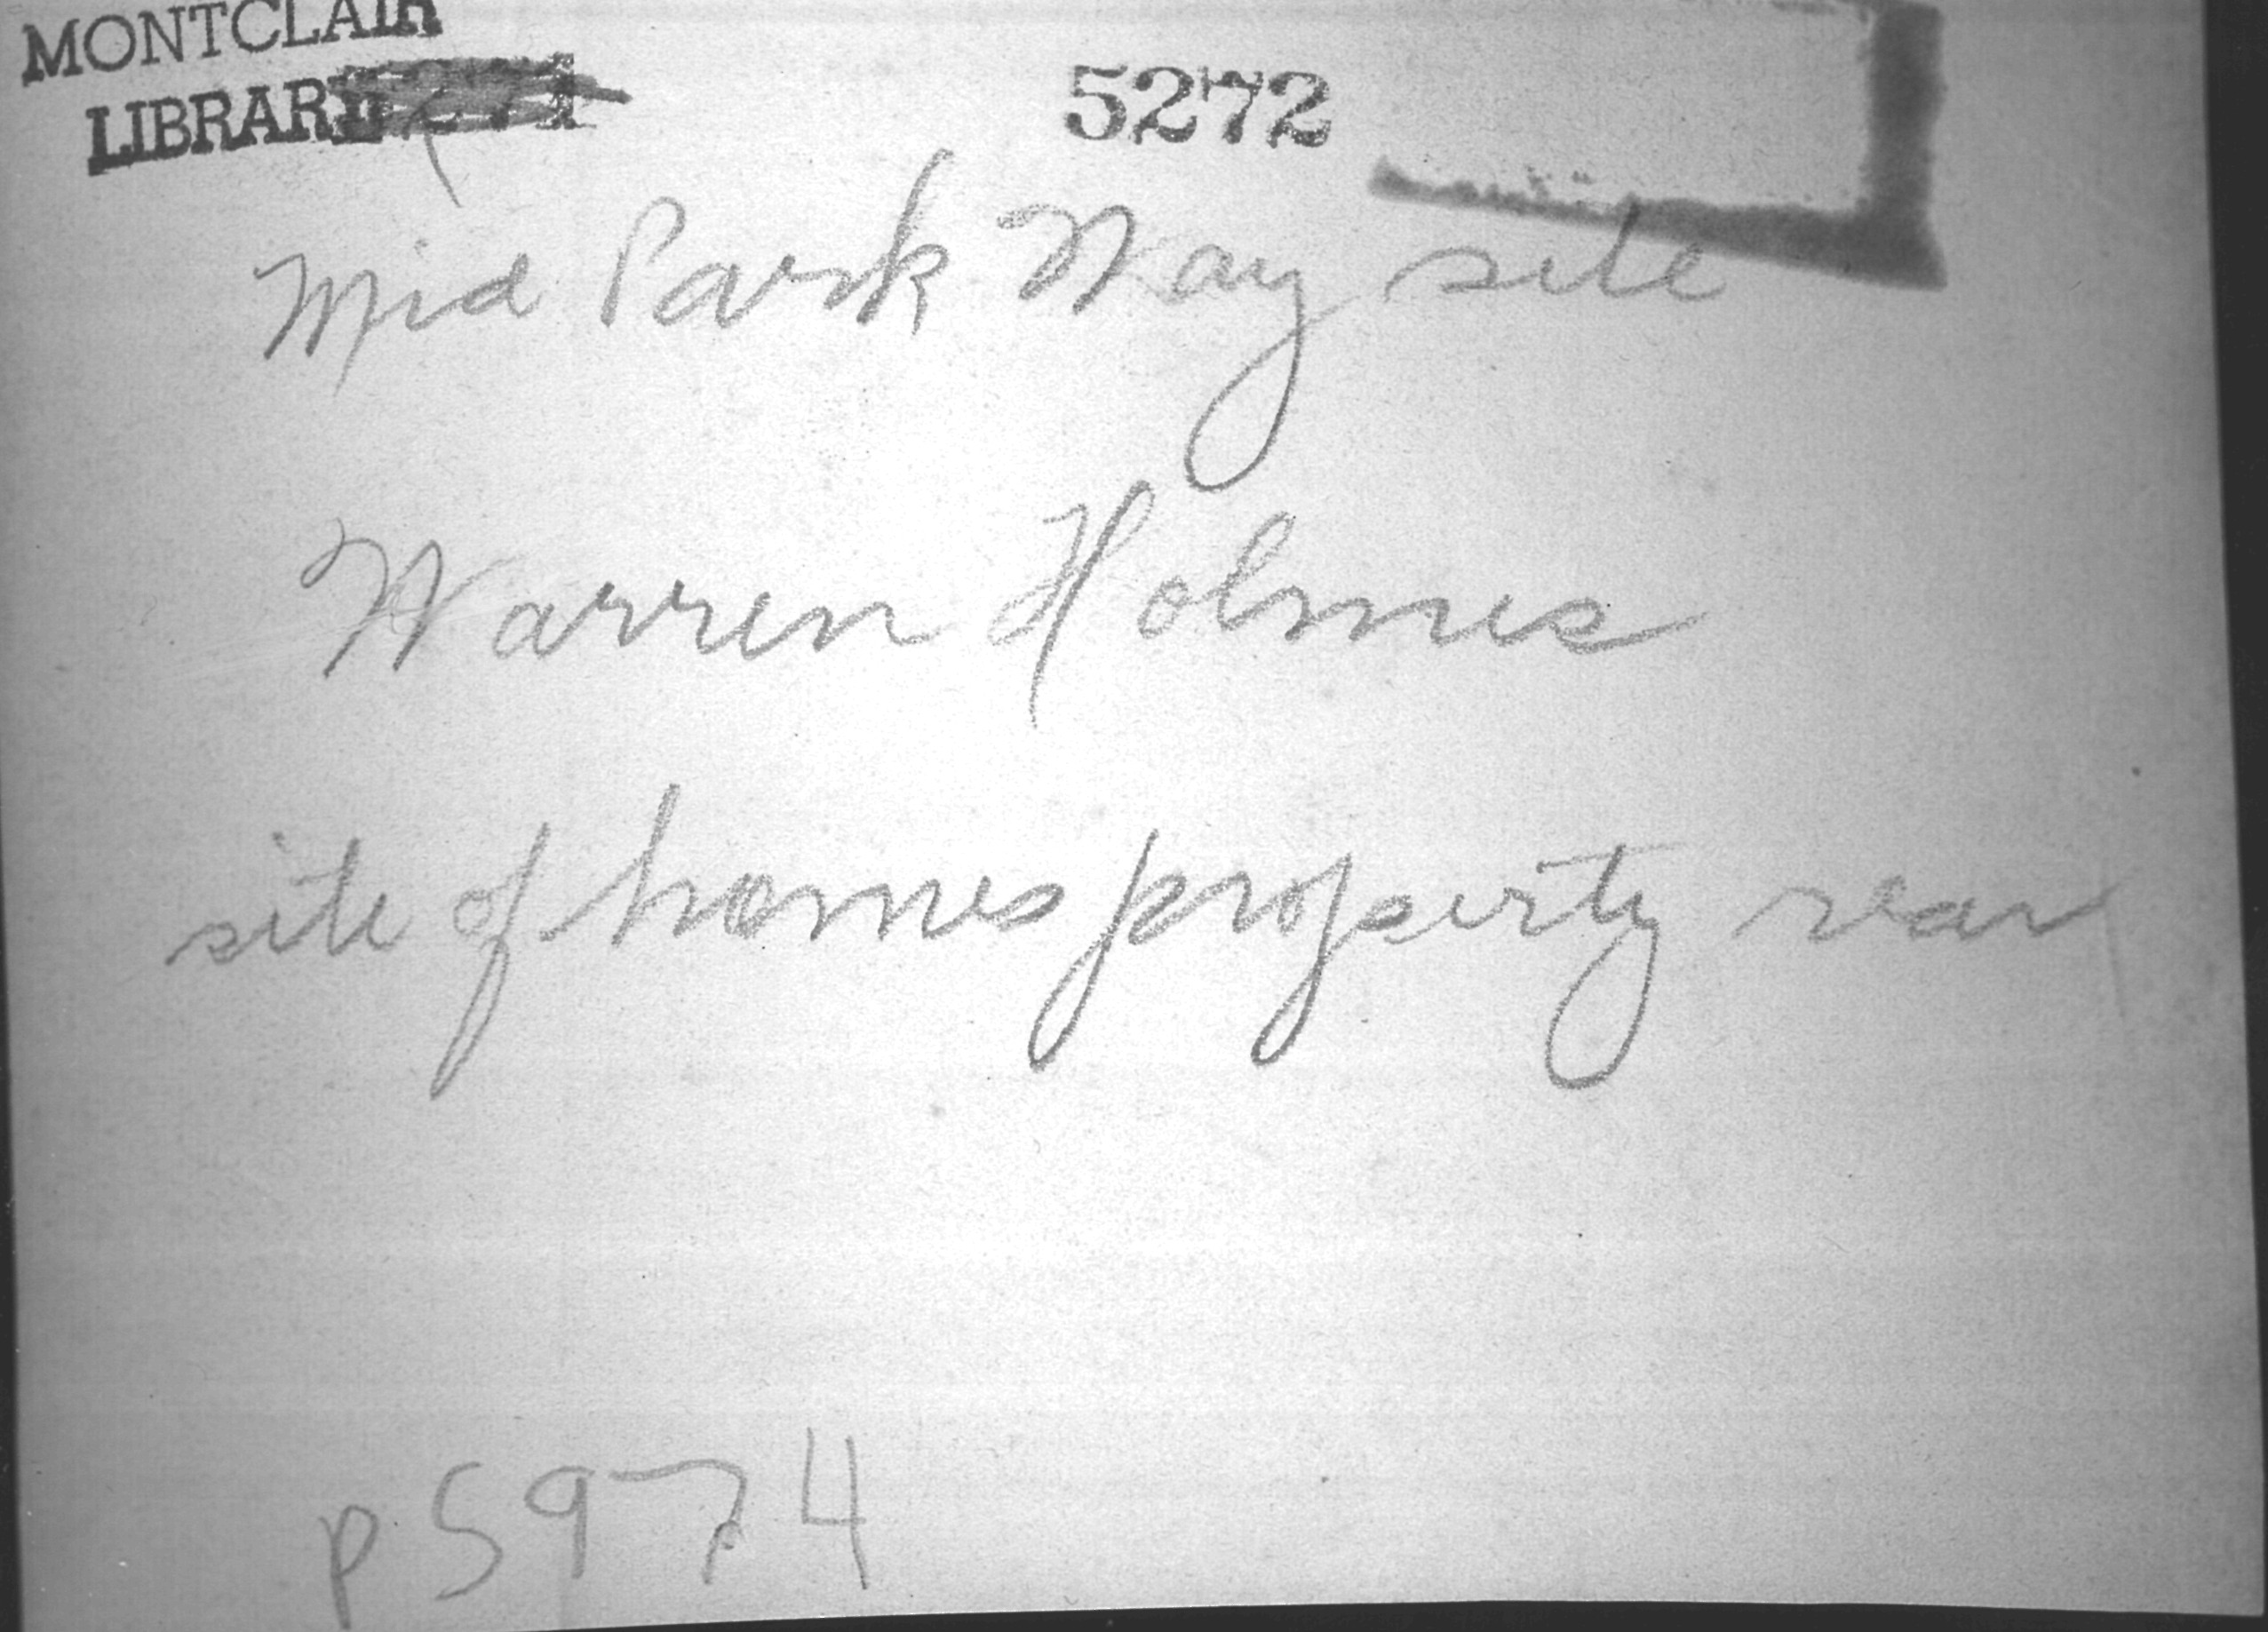 MONTCLAIR
LIBRARY
5272
Mid Park Way site
Warren Holmes
site of homes property rear
p5974